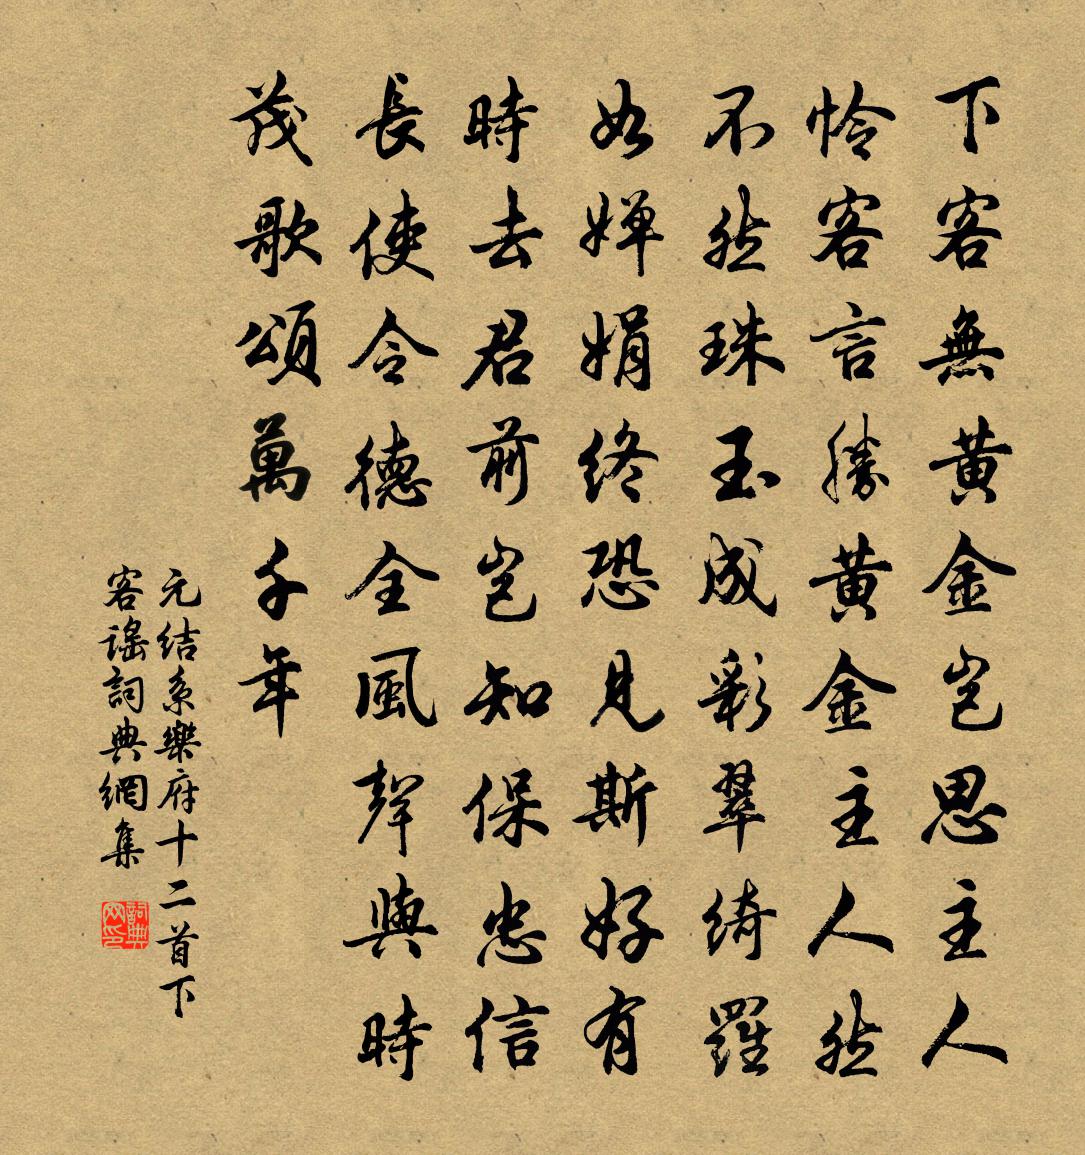 下客無黄金豈思主人
怜客言勝黄金主人然
不然珠玉成彩翠綺羅
如嬋娟終恐見斯好有
時去君前豈知保忠信
長使令德全風聲與時
茂歌頌萬千年
元结系樂府十二首下
客謡詞典網集
詞典网印